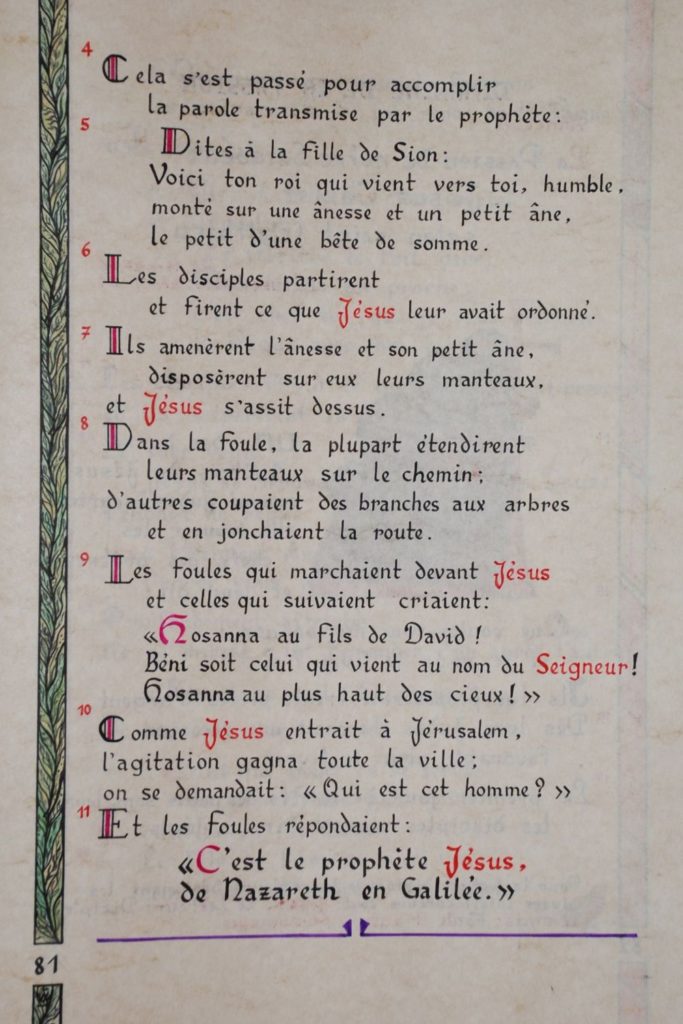 4
Cela s'est passé pour accomplir
la parole transmise par le prophète:
5
Dites à la fille de Sion:
Voici ton roi qui vient vers toi, humble,
monté sur une ânesse et un petit âne,
le petit d'une bête de somme.
6
Les disciples partirent
et firent ce que Jésus leur avait ordonné.
7
Ils amenèrent l'ânesse et son petit âne,
disposèrent sur eux leurs manteaux,
et Jésus s'assit dessus.
8
Dans la foule, la plupart étendirent
leurs manteaux sur le chemin;
d'autres coupaient des branches aux arbres
et en jonchaient la route.
9
Les foules qui marchaient devant Jésus
et celles qui suivaient criaient:
«Hosanna au fils de David !
Béni soit celui qui vient au nom du Seigneur!
Hosanna au plus haut des cieux! »
10
Comme Jésus entrait à Jérusalem,
l'agitation gagna toute la ville;
on se demandait: «Qui est cet homme? »
11
Et les foules répondaient:
«C'est le prophète Jésus,
de Nazareth en Galilée.»
81